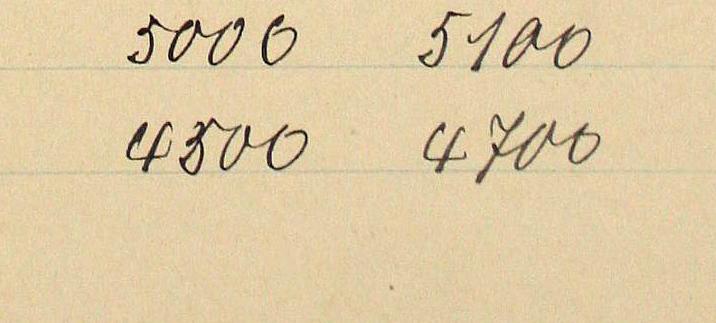 5000 5100
4500 4700